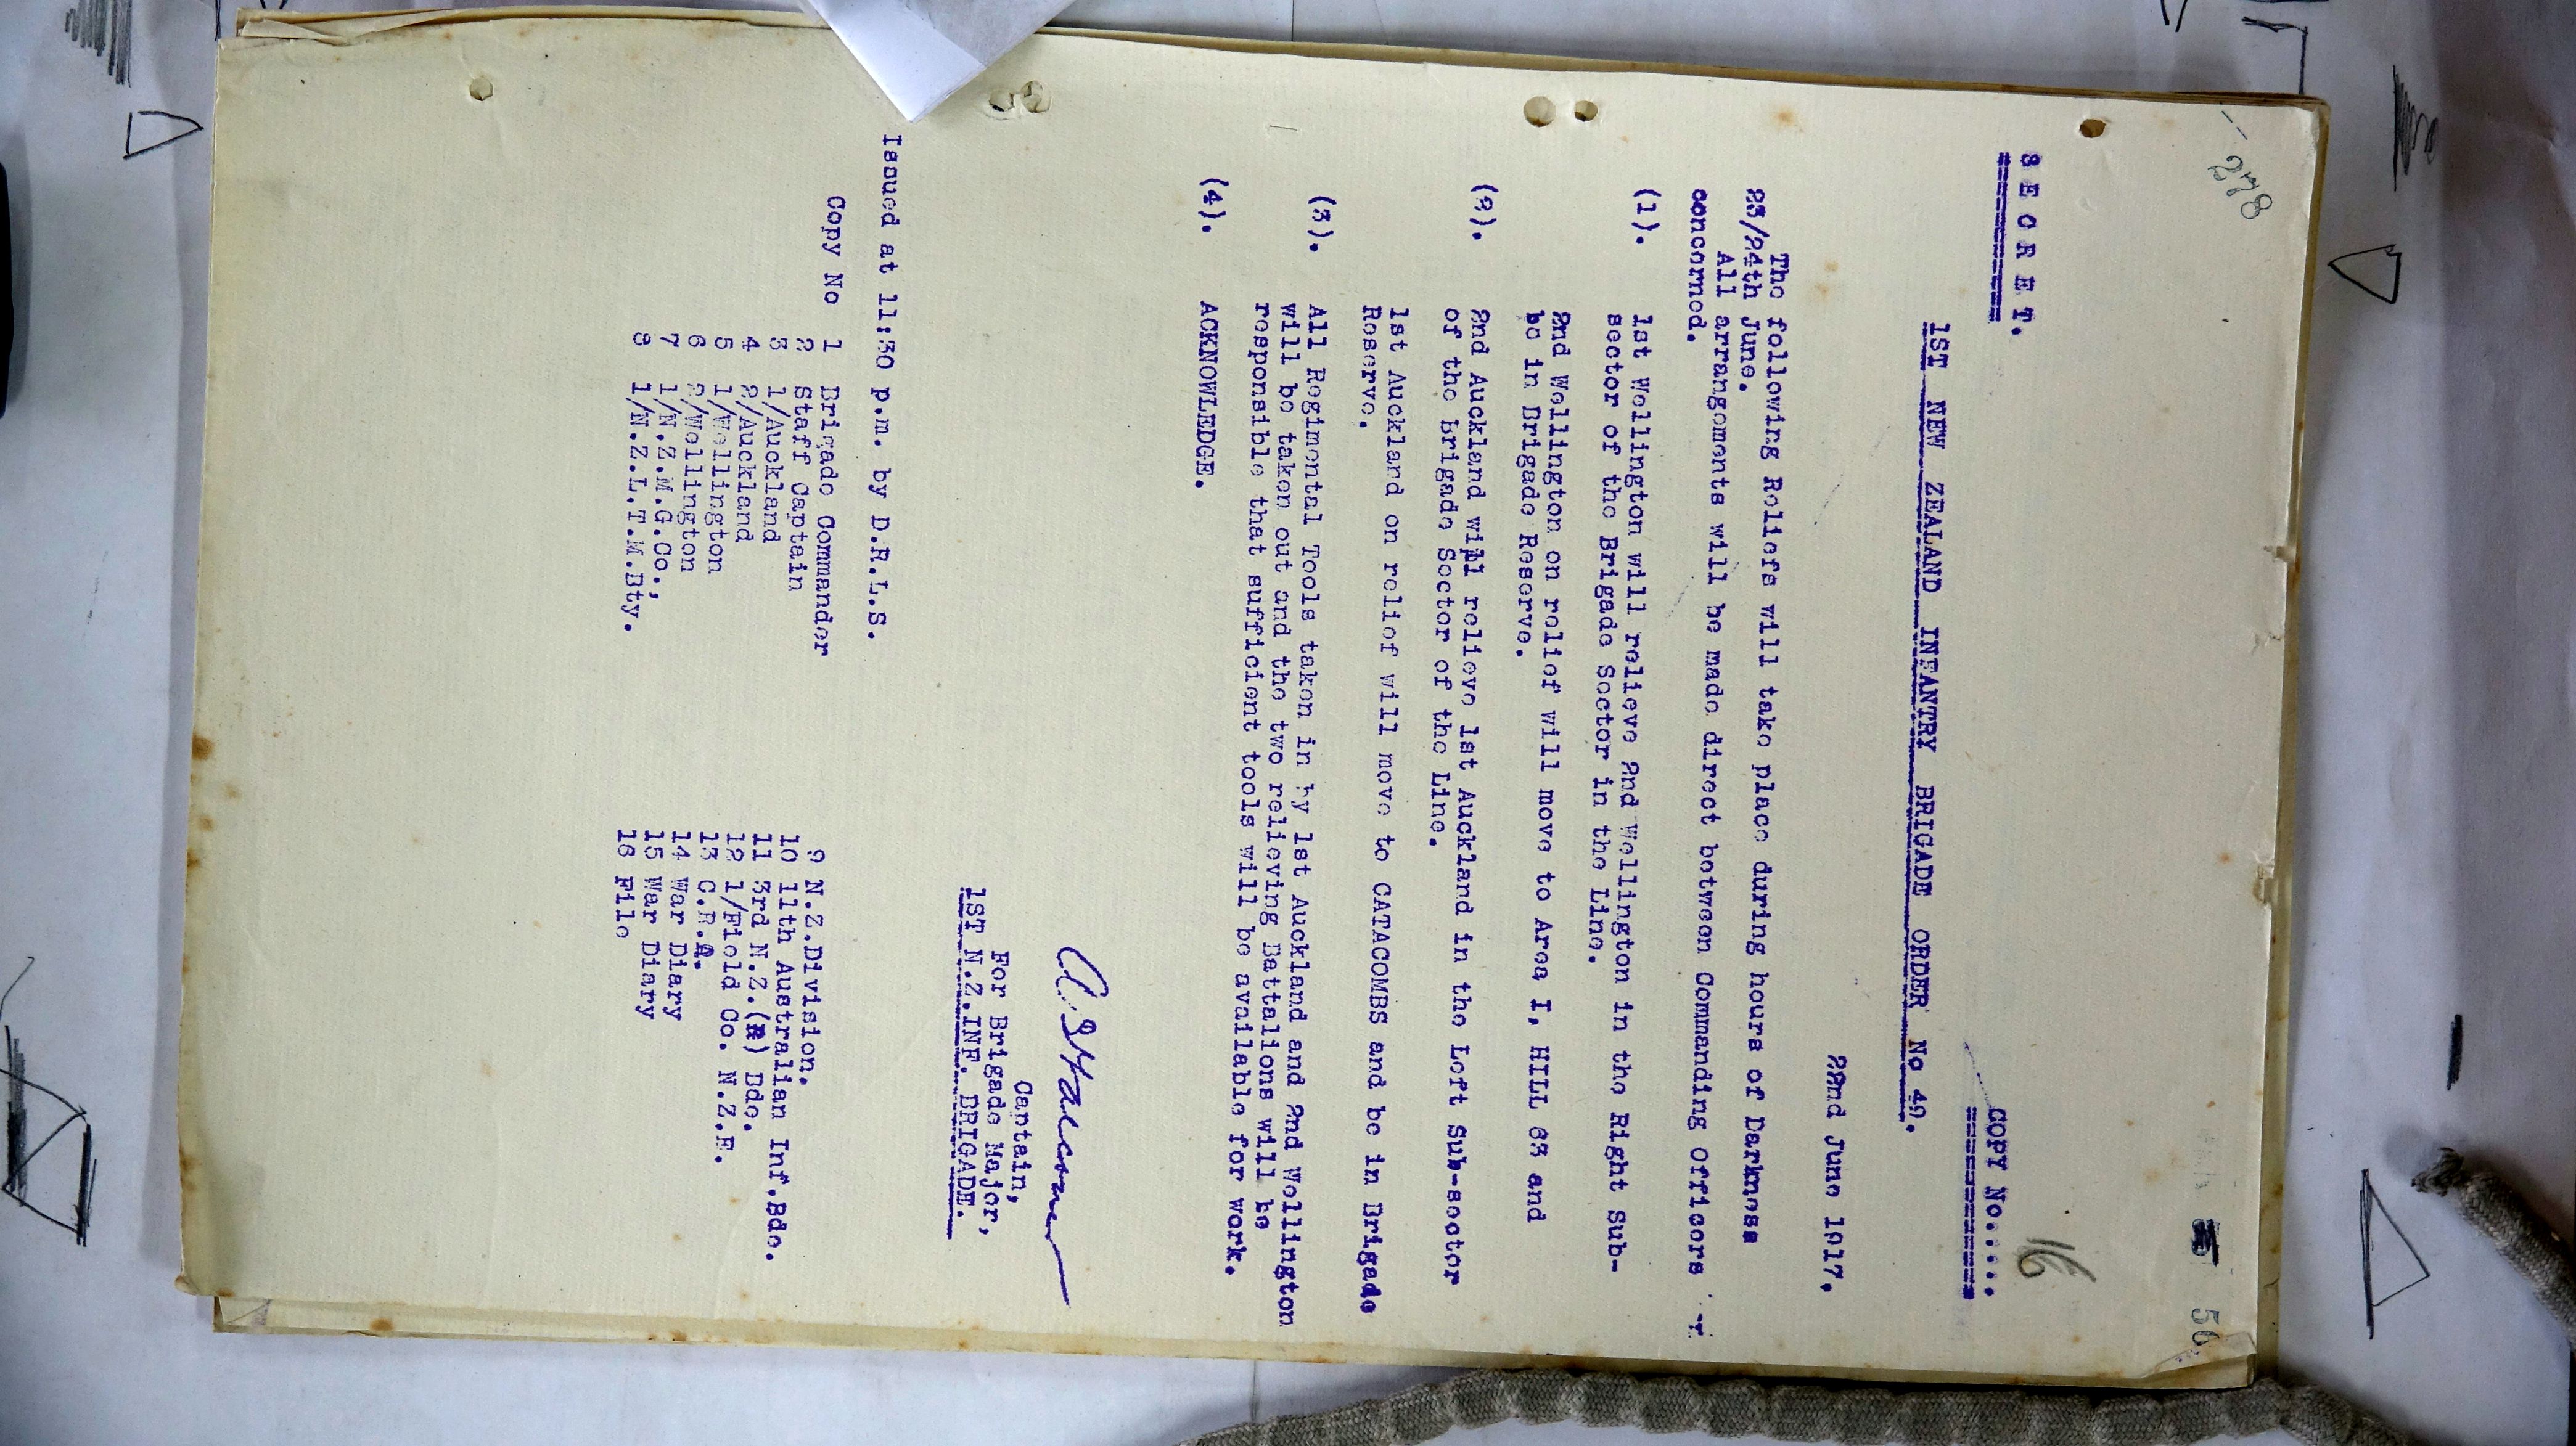 278
56
SECRET.
16
COPY No......
1ST NEW ZEALAND INFANTRY BRIGADE ORDER No 49.
22nd June 1917.
The following Reliefs will take place during hours of Darkness
23/24th June.
All arrangements will be made direct between Commanding Officers
concerned.
(1). 1st Wellington will relieve 2nd Wellington in the Right Sub-
sector of the Brigade Sector in the Line.
2nd Wellington on relief will move to Area I, HILL 63 and
be in Brigade Reserve.
(2). 2nd Auckland will relieve 1st Auckland in the Left Sub-sector
of the Brigade Sector of the Line.
1st Auckland on relief will move to CATACOMBS and be in Brigade
Reserve.
(3). All Regimental Tools taken in by 1st Auckland and 2nd Wellington
will be taken out and the two relieving Battalions will be
responsible that sufficient tools will be available for work.
(4). ACKNOWLEDGE.
Captain,
For Brigade Major,
1ST N.Z.INF. BRIGADE.
Issued at 11:30 p.m. by D.R.L.S.
Copy No 1 Brigade Commander
2 Staff Captain
3 1/Auckland
4 2/Auckland
5 1/Wellington
6 2/Wellington
7 1/N.Z.M.G.Co.,
8 1/N.Z.L.T.M.Bty.
9 N.Z.Division.
10 11th Australian Inf.Bde.
11 3rd N.Z.(R) Bde.
12 1/Field Co. N.Z.E.
13 C.R.A.
14 War Diary
15 War Diary
16 File